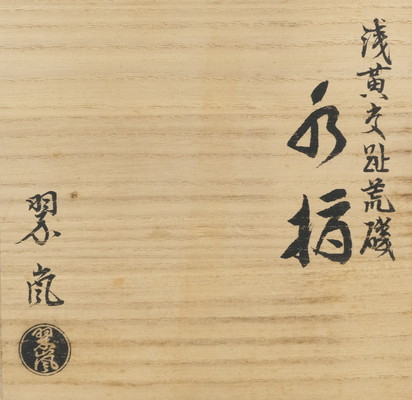 浅黄交趾荒磯
水指
翠嵐
翠嵐